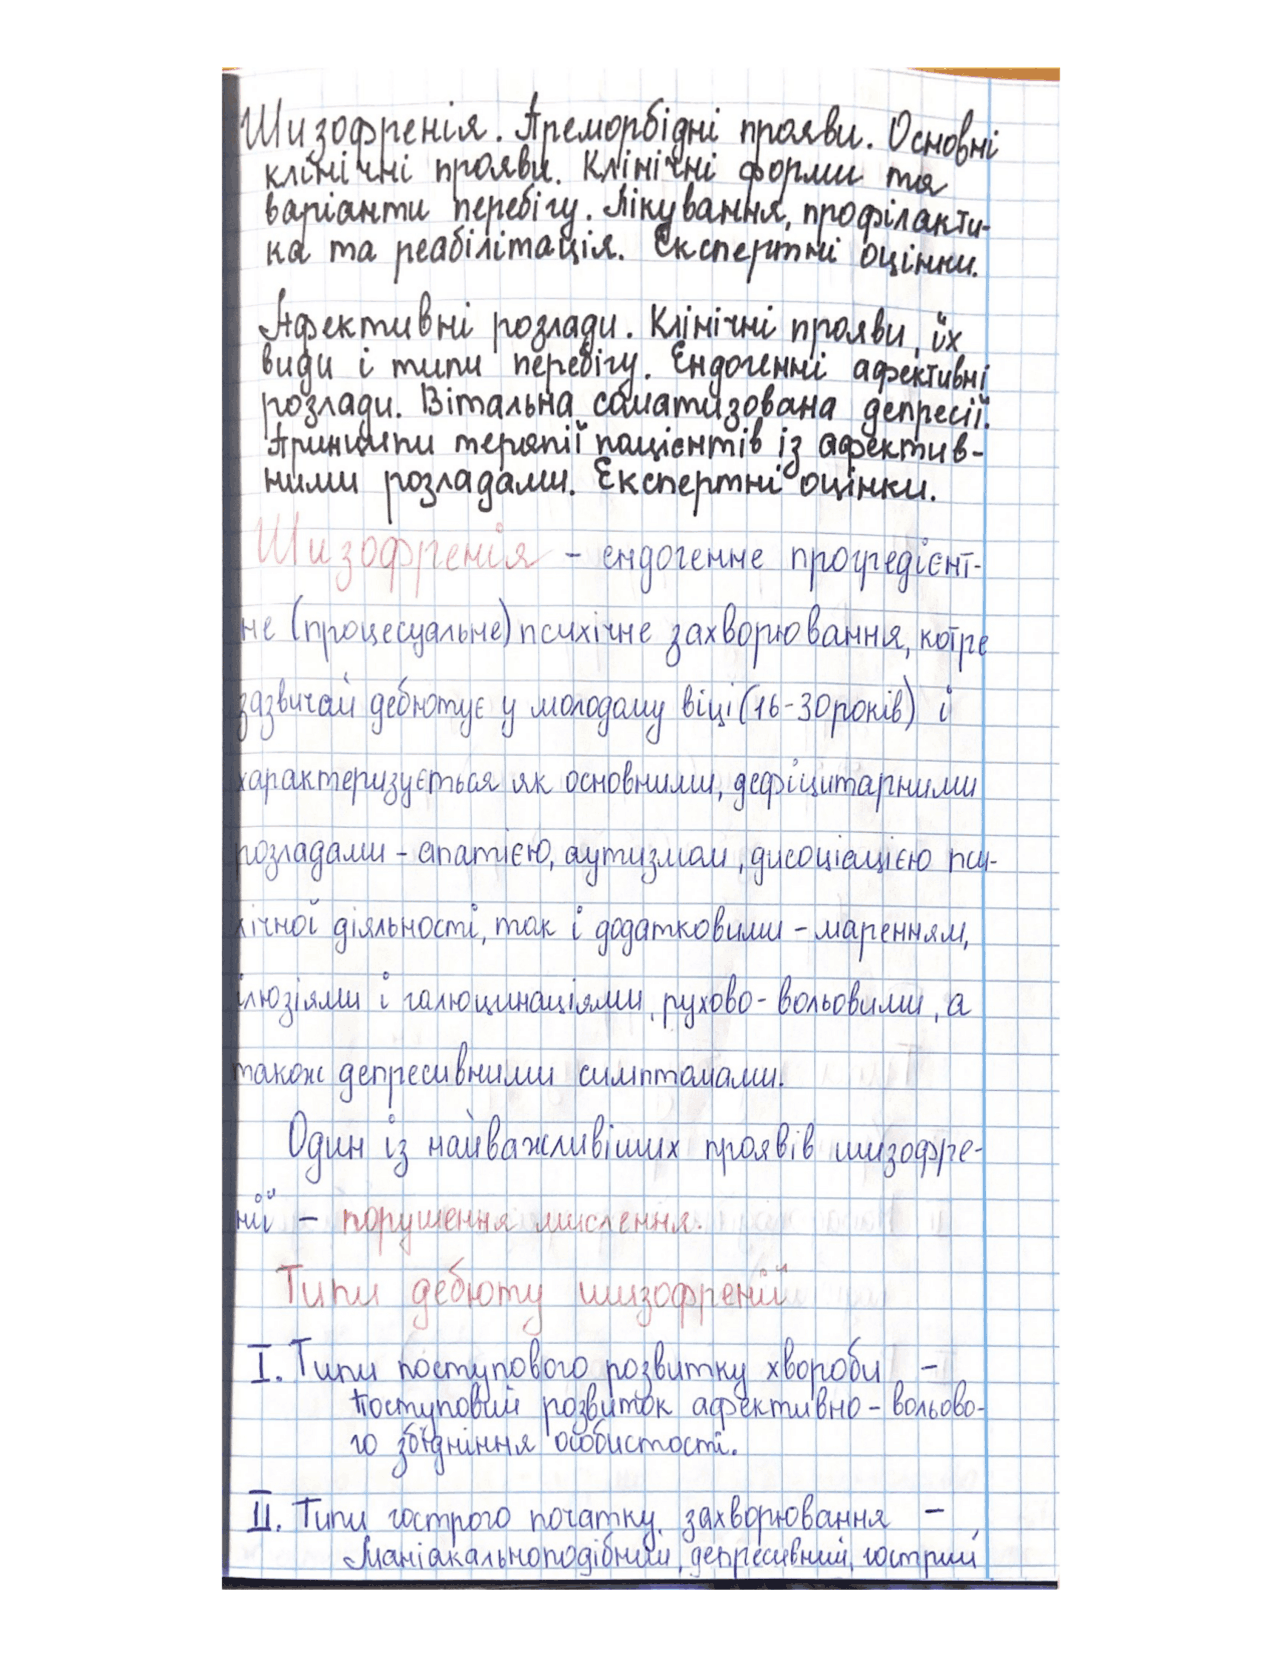 Шизофренія. Преморбідні прояви. Основні
клінічні прояви. Клінічні форми та
варіанти перебігу. Лікування, профілакти-
ка та реабілітація. Експертні оцінки.
Афективні розлади. Клінічні прояви, їх
види і типи перебігу. Ендогенні афективні
розлади. Вітальна соматизована депресії.
Принципи терапії пацієнтів із афектив-
ними розладами. Експертні оцінки.
Шизофренія – ендогенне прогредієнт-
не (процесуальне) психічне захворювання, котре
зазвичай дебютує у молодому віці (16-30 років) і
характеризується як основними, дефіцитарними
розладами – апатією, аутизмом, дисоціацією пси-
хічної діяльності, так і додатковими – маренням,
ілюзіями і галюцинаціями, рухово-вольовими, а
також депресивними симптомами.
Один із найважливіших проявів шизофре-
нії – порушення мислення.
Типи дебюту шизофренії
I. Типи поступового розвитку хвороби –
Поступовий розвиток афективно-вольово-
го збідніння особистості.
II. Типи гострого початку захворювання –
Маніакальноподібний, депресивний, гострий